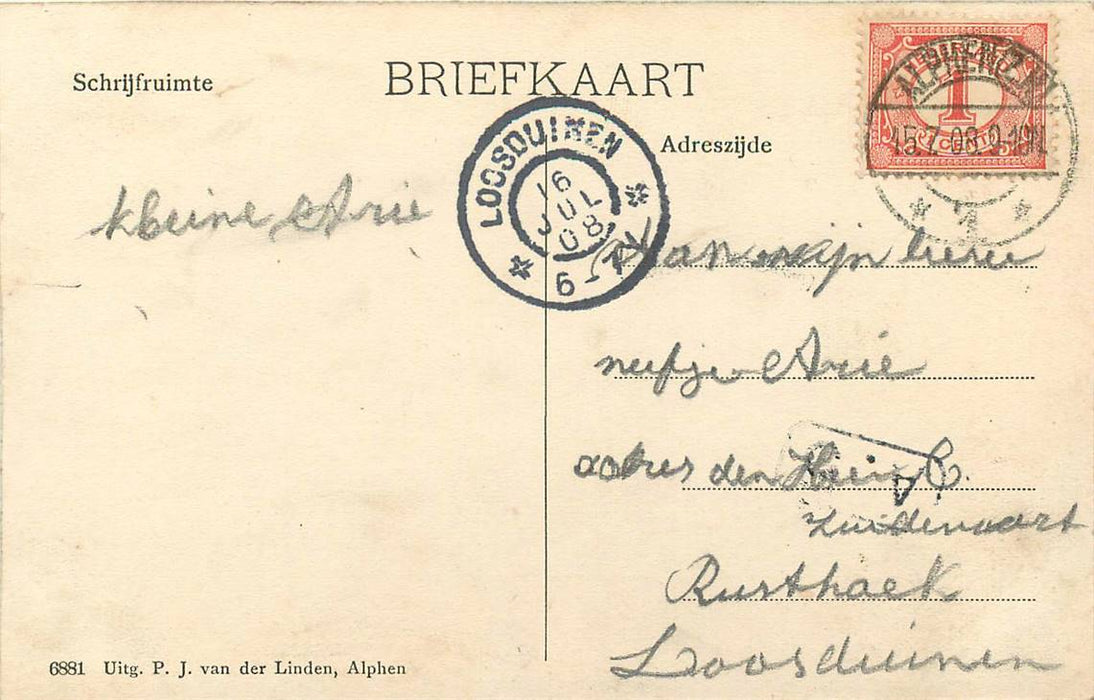 Schrijfruimte
BRIEFKAART
Adreszijde
ALPHEN (Z.H.)
15.7.08.9-10N
1
1 CENT
1
LOOSDUINEN
16
JUL
08
6-7V
kleine Arie
Aan mijn lieve
neefje Arie
adres den Heer C.
Zuidervaart
Rusthoek
Loosduinen
6881 Uitg. P. J. van der Linden, Alphen